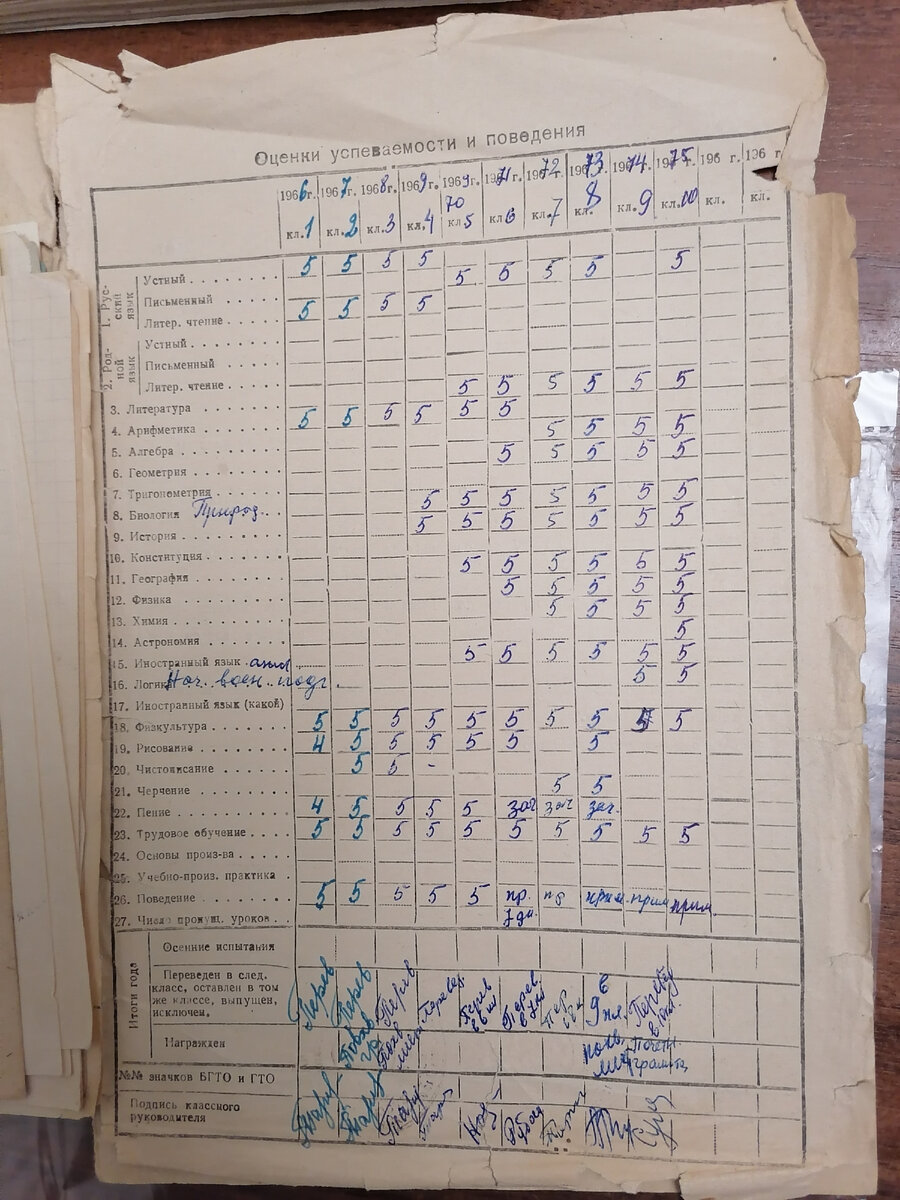 Оценки успеваемости и поведения
1966г. 1967г. 1968г. 1969г. 1969 г. 1971 г. 1972 1973 1974 1975 196 г. 196 г.
70
кл.1 кл.2 кл.3 кл.4 кл5 кл6 кл.7 кл.8 кл.9 кл.10 кл. кл.
1. Русский язык
Устный 5 5 5 5 5 5 5 5 5
Письменный
Литер. чтение 5 5 5 5
2. Родной язык
Устный
Письменный
Литер. чтение 5 5 5 5 5 5
3. Литература 5 5 5 5 5 5
4. Арифметика 5 5 5 5
5. Алгебра 5 5 5 5 5
6. Геометрия
7. Тригонометрия 5 5 5 5 5 5 5
8. Биология Природ. 5 5 5 5 5 5 5
9. История
10. Конституция 5 5 5 5 5 5
11. География 5 5 5 5 5
12. Физика 5 5 5 5
13. Химия 5
14. Астрономия
15. Иностранный язык англ 5 5 5 5 5 5
16. Логика Нач. воен. подг. 5 5
17. Иностранный язык (какой)
18. Физкультура 5 5 5 5 5 5 5 5 5 5
19. Рисование 4 5 5 5 5 5 5
20. Чистописание 5 5 -
21. Черчение 5 5
22. Пение 4 5 5 5 5 зач зач зач.
23. Трудовое обучение 5 5 5 5 5 5 5 5 5 5
24. Основы произ-ва
25. Учебно-произ. практика
26. Поведение 5 5 5 5 5 пр. пр прим. прим прим.
27. Число пропущ. уроков 7 дн.
Итоги года
Осенние испытания
Переведен в след. класс, оставлен в том же классе, выпущен, исключен.
Перев Перев Перев Перевед. Перев в 6 кл Перев в 7 кл Пер в 9 кл. Перевед в 10 кл.
Награжден
Похв. гр. Похв. лист похв. лист Почетн. грамота
№№ значков БГТО и ГТО
Подпись классного руководителя